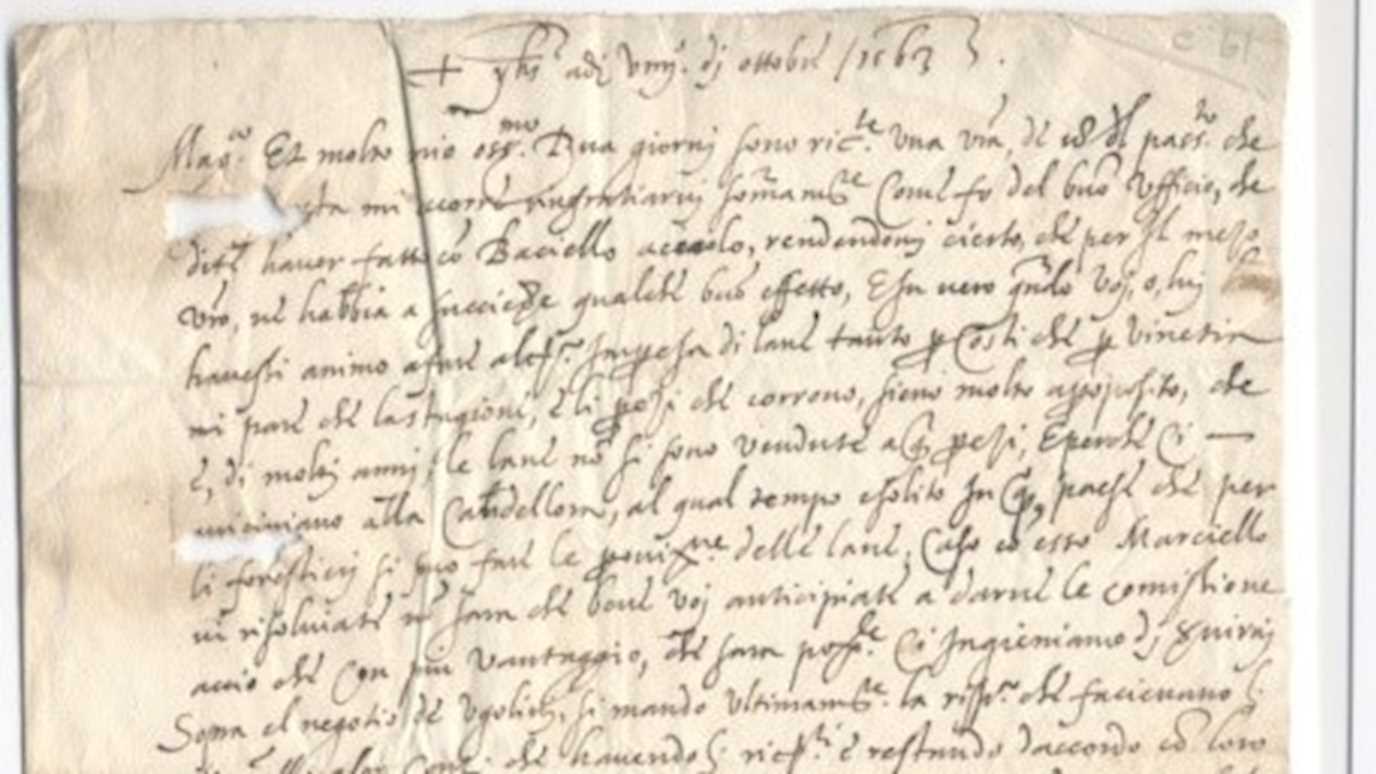 + yhs adj viiij. dj ottobre 1563
Mag.co Et molto mio oss.mo Dua giorni sono ric.te una vra, de 28 del pass.to che
mi ocorre ringratiarvj somam.te Come fo del buo Ufficio, che
dite haver fatto co Baciello acciolo, rendendomj cierto, che per il mezo
vro, ne habbia a succiedere qualche buo effetto, E in vero qndo Voj, o, luj
havessi animo a fare alc.a Impresa di lane tanto p Costi che p Vinetia
mi pare che la stagione, e li prezi che corrono, sieno molto aproposito, che
e, di molti annj, le lane no si sono vendute a prezi, E perche Ci
aviciniano alla Candellora, al qual tempo esolito In paese che per
li forestierj si suo fare le provix.ne delle lane, Caso co esso Marciello
vi risolviate no sara che bene Voj anticipiate a darne le comissione
accio che Con piu Vantaggio, che sara poss.le Ci Ingieniamo dj servirvj
Sopra el negotio de Ugolinj, si mando Ultimam.te la risp.a che facievano
che havendo ric e restando daccordo co loro